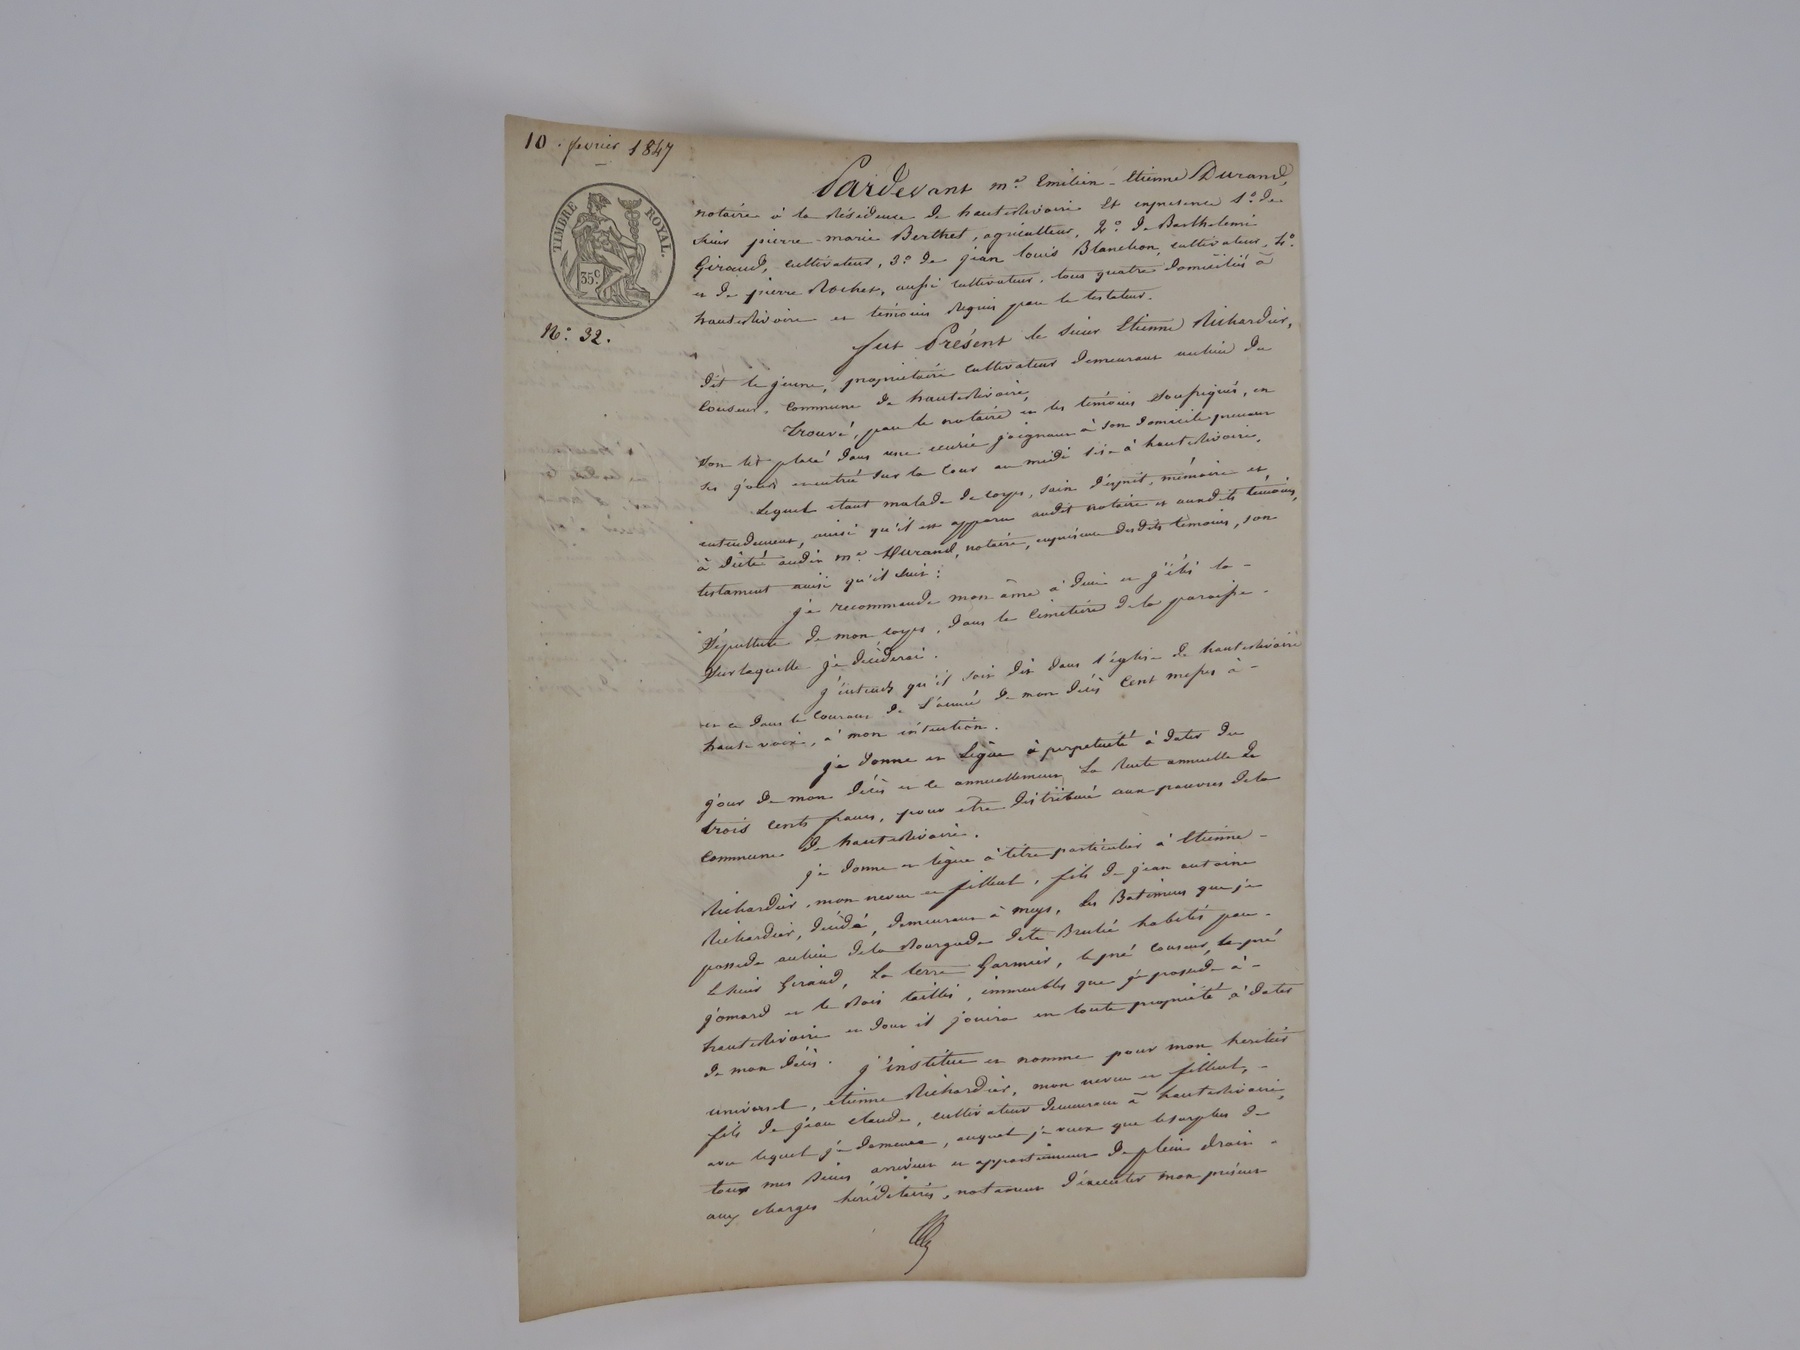 10 fevrier 1847
TIMBRE ROYAL.
35c.
No. 32.
Pardevant me. Emilien-Etienne Durand,
notaire à la Résidence de hauterivoire Et en présence 1o. de
sieur pierre-marie Berthet, agriculteur, 2o. de Barthelemi
Giraud, cultivateur, 3o. de jean Louis Blanchon, cultivateur, 4o.
et de pierre Rochet, aussi cultivateur, tous quatre domiciliés à
hauterivoire et témoins requis par le testateur.
fut Présent le sieur Etienne Richardier,
dit le jeune, propriétaire cultivateur demeurant au lieu du
Couseur, Commune de hauterivoire,
trouvé, par le notaire et les témoins soussignés, en
son lit placé dans une écurie joignant à son domicile prenant
ses jours et entrée sur la Cour au midi sise à hauterivoire.
Lequel étant malade de corps, sain d'esprit, mémoire et
entendement, ainsi qu'il est apparu audit notaire et auxdits témoins,
à dicté audit me Durand, notaire, en présence desdits témoins, son
testament ainsi qu'il suit :
je recommande mon âme à dieu et j'élis la
sépulture de mon corps, dans le Cimetière de la paroisse
sur laquelle je décèderai.
j'entends qu'il soit dit dans l'église de hauterivoire
et ce dans le Courant de l'année de mon décès Cent messes à
haute voix, à mon intention.
je donne et Lègue à perpétuité à dater du
jour de mon décès et ce annuellement La Rente annuelle de
trois Cents francs, pour être distribué aux pauvres de la
Commune de hauterivoire.
je donne et lègue à titre particulier à Etienne
Richardier, mon neveu et filleul, fils de jean antoine
Richardier, décédé, demeurant à meys, les Batimens que je
possede au lieu de la Bourgade dite Brulée habités par
le sieur Giraud, La terre Garmier, le pré Couseur, le pré
jomard et le Bois taillis, immeubles que je possede à
hauterivoire et dont il jouira en toute propriété à dater
de mon décès. j'institue et nomme pour mon heritier
universel, etienne Richardier, mon neveu et filleul,
fils de jean claude, cultivateur demeurant à hauterivoire,
avec lequel je demeure, auquel je veux que le surplus de
tous mes Biens arrivent et appartiennent de plein droit
aux charges héréditaires, notament d'éxécuter mon présent